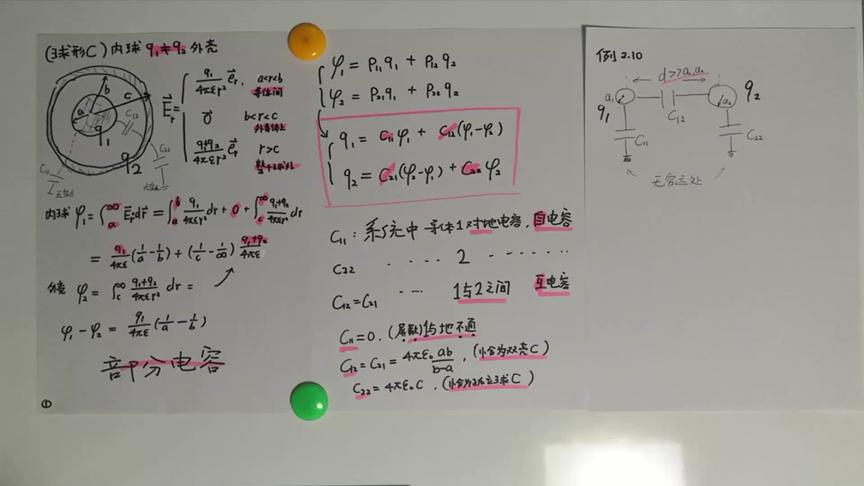 (球形C) 内球 q₁≠q₂ 外壳
a
b
c
q₁
q₂
C₁₂
C₂₂
E⃗r =
q₁/4πεr² e⃗r , a<r<b
导体间
0 b<r<c
q₁+q₂/4πεr² e⃗r r>c
内球 φ₁ = ∫ₐ^∞ E⃗r dr⃗ = ∫ₐᵇ q₁/4πεr² dr + 0 + ∫c^∞ q₁+q₂/4πεr² dr
= q₁/4πε (1/a - 1/b) + (1/c - 1/∞) q₁+q₂/4πε
φ₂ = ∫c^∞ q₁+q₂/4πεr² dr =
φ₁ - φ₂ = q₁/4πε (1/a - 1/b)
部分电容
①
φ₁ = P₁₁ q₁ + P₁₂ q₂
φ₂ = P₂₁ q₁ + P₂₂ q₂
q₁ = C₁₁ φ₁ + C₁₂ (φ₁-φ₂)
q₂ = C₂₁ (φ₂-φ₁) + C₂₂ φ₂
C₁₁ : 系统中 导体1对地电容, 自电容
C₂₂ ···· 2 ·······
C₁₂=C₂₁ ···· 1与2之间 互电容
C₁₁=0, (屏蔽) 1与地不通
C₁₂=C₂₁= 4πε₀ab/b-a , (恰为双壳C)
C₂₂ = 4πε₀c , (恰为孤立球C)
例 2.10
d>>a₁,a₂
a₁
a₂
q₁
q₂
C₁₂
C₁₁
C₂₂
无穷远处